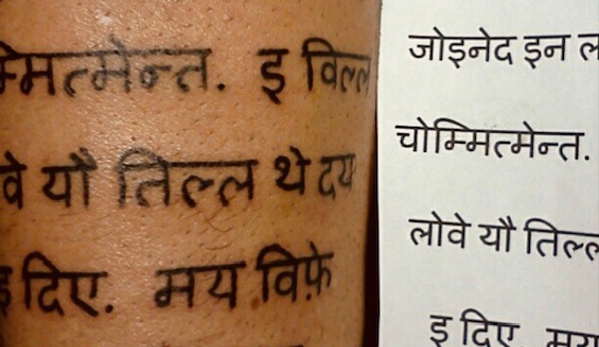 म्मित्मेन्त. इ विल्ल
वे यौ तिल्ल थे दय
इ दिए. मय विफ़े
जोइनेद इन ल
चोम्मित्मेन्त.
लोवे यौ तिल्ल
इ दिए. मय